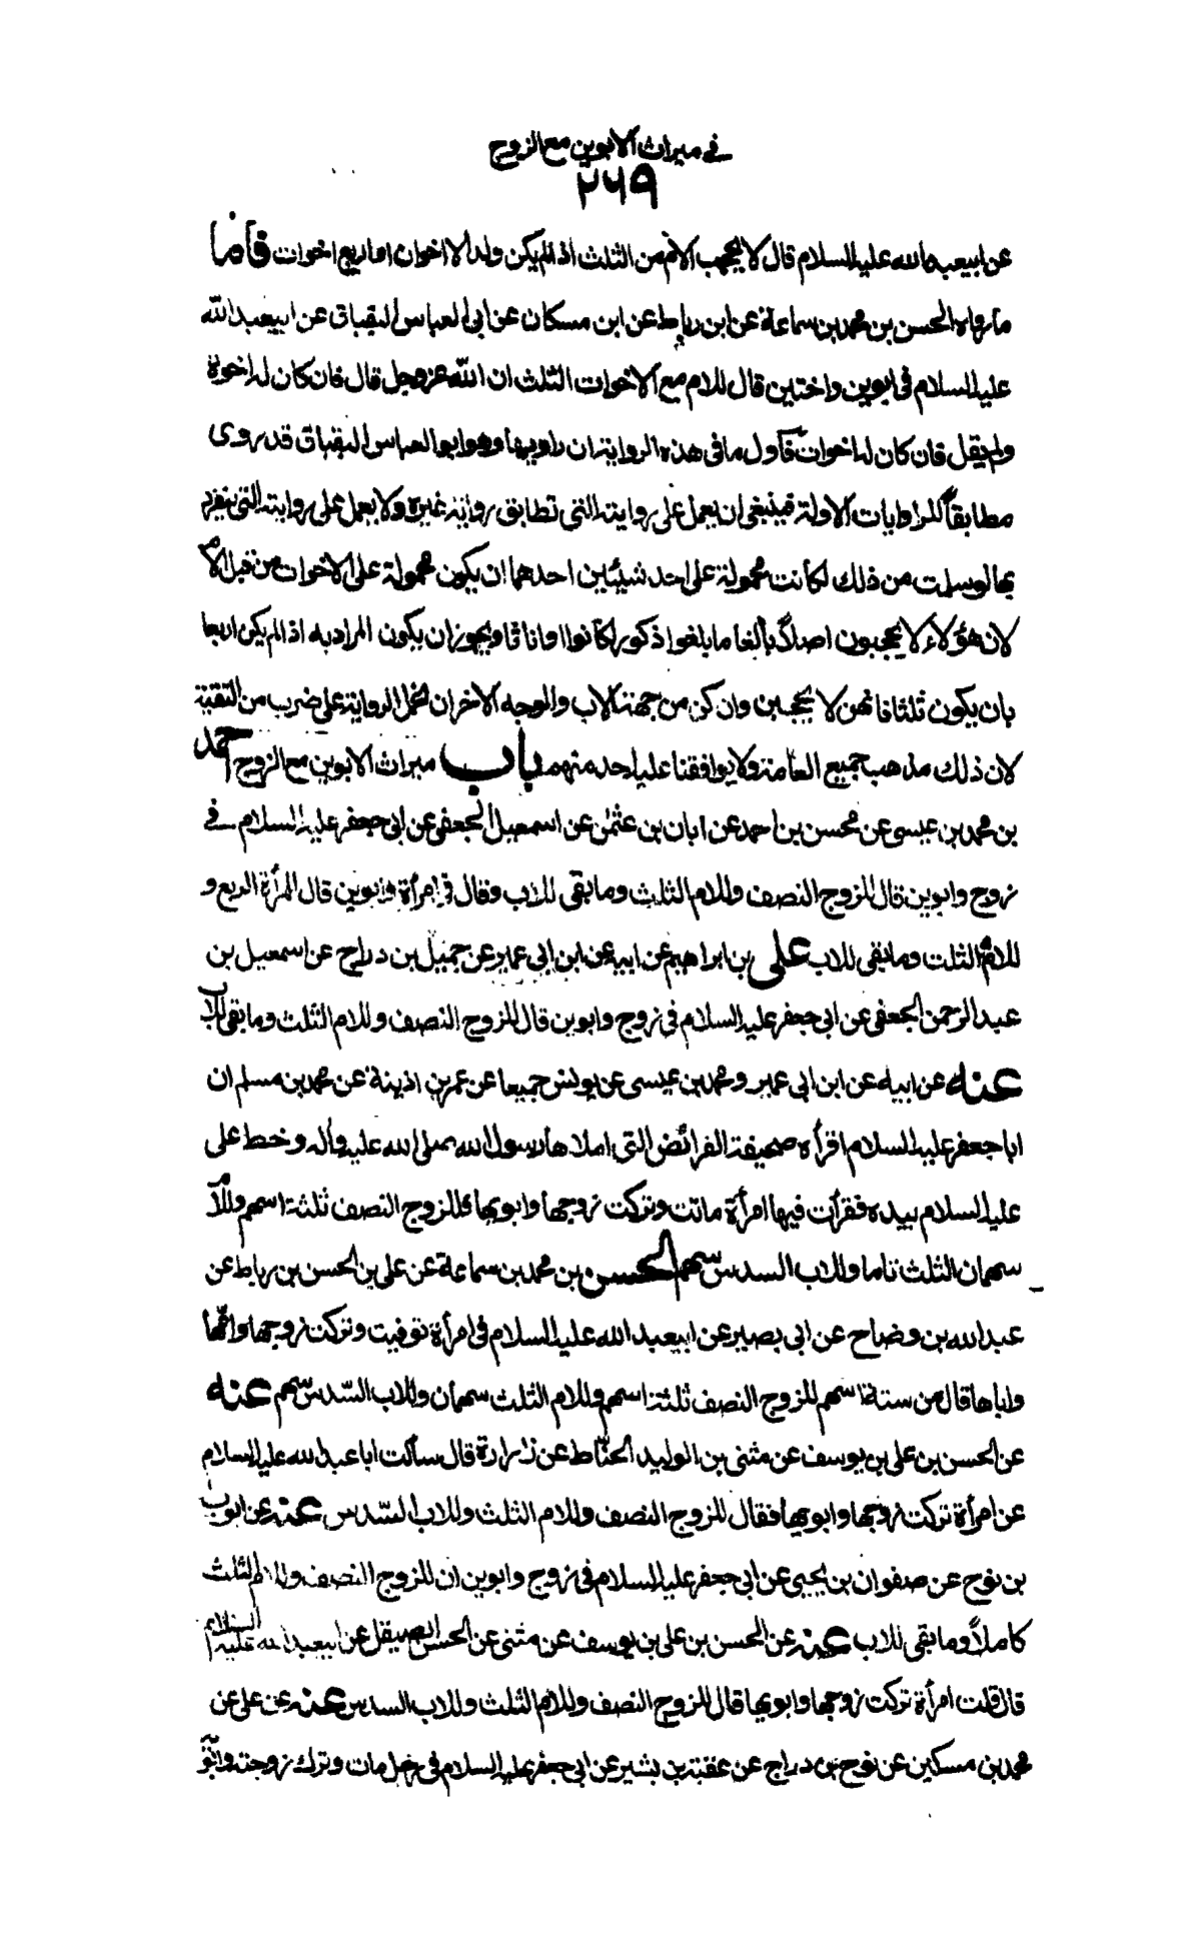 في ميراث الابوين مع الزوج
٢٦٩
عن ابيعبد الله عليه السلام قال لا يحجب الام من الثلث اذا لم يكن ولد الا اخوان او اربع اخوات فاما
ما رواه الحسن بن محمد بن سماعة عن ابن رباط عن ابن مسكان عن ابي العباس البقباق عن ابيعبد الله
عليه السلام في ابوين واختين قال للام مع الاخوات الثلث ان الله عز وجل قال فان كان له اخوة
ولم يقل فان كان له اخوات فاول ما في هذه الرواية ان راويها وهو ابو العباس البقباق قد روى
مطابقاً للروايات الاولة فينبغي ان يعمل على روايته التي تطابق رواية غيره ولا يعمل على روايته التي ينفرد
بها لو سلمت من ذلك لكانت محمولة على احد شيئين احدهما ان يكون محمولة على الاخوات من قبل الام
لان هؤلاء لا يحجبون اصلاً بالغا ما بلغوا ذكورا كانوا او اناثا ويجوز ان يكون المراد به اذا لم يكن اربعا
بان يكون ثلثا فانهن لا يحجبن وان كن من جهة الاب والوجه الاخر ان نحمل الرواية على ضرب من التقية
لان ذلك مذهب جميع العامة ولا يوافقنا عليه احد منهم باب ميراث الابوين مع الزوج احمد
بن محمد بن عيسى عن محسن بن احمد عن ابان بن عثمن عن اسمعيل الجعفي عن ابي جعفر عليه السلام في
زوج وابوين قال للزوج النصف وللام الثلث وما بقي للاب وقال في امرأة وابوين قال للمرأة الربع و
للام الثلث وما بقي للاب علي بن ابراهيم عن ابيه عن ابن ابي عمير عن جميل بن دراج عن اسمعيل بن
عبد الرحمن الجعفي عن ابي جعفر عليه السلام في زوج وابوين قال للزوج النصف وللام الثلث وما بقي للاب
عنه عن ابيه عن ابن ابي عمير ومحمد بن عيسى عن يونس جميعا عن عمر بن اذينة عن محمد بن مسلم ان
ابا جعفر عليه السلام اقرأه صحيفة الفرائض التي املاها رسول الله صلى الله عليه وآله وخط علي
عليه السلام بيده فقرأت فيها امرأة ماتت وتركت زوجها وابويها فللزوج النصف ثلثة اسهم وللام
سهمان الثلث تاما وللاب السدس سهم الحسن بن محمد بن سماعة عن علي بن الحسن بن رباط عن
عبد الله بن وضاح عن ابي بصير عن ابيعبد الله عليه السلام في امرأة توفيت وتركت زوجها وامها
واباها قال من ستة اسهم للزوج النصف ثلثة اسهم وللام الثلث سهمان وللاب السّدس سهم عنه
عن الحسن بن علي بن يوسف عن مثنى بن الوليد الحنّاط عن زرارة قال سألت ابا عبد الله عليه السلام
عن امرأة تركت زوجها وابويها فقال للزوج النصف وللام الثلث وللاب السّدس عنه عن ايوب
بن نوح عن صفوان بن يحيى عن ابي جعفر عليه السلام في زوج وابوين ان للزوج النصف وللام الثلث
كاملاً وما بقي للاب عنه عن الحسن بن علي بن يوسف عن مثنى عن الحسن الصيقل عن ابيعبد الله عليه السلام
قال قلت امرأة تركت زوجها وابويها قال للزوج النصف وللام الثلث وللاب السدس عنه عن علي عن
محمد بن مسكين عن نوح بن دراج عن عقبة بن بشير عن ابي جعفر عليه السلام في رجل مات وترك زوجته وابويه